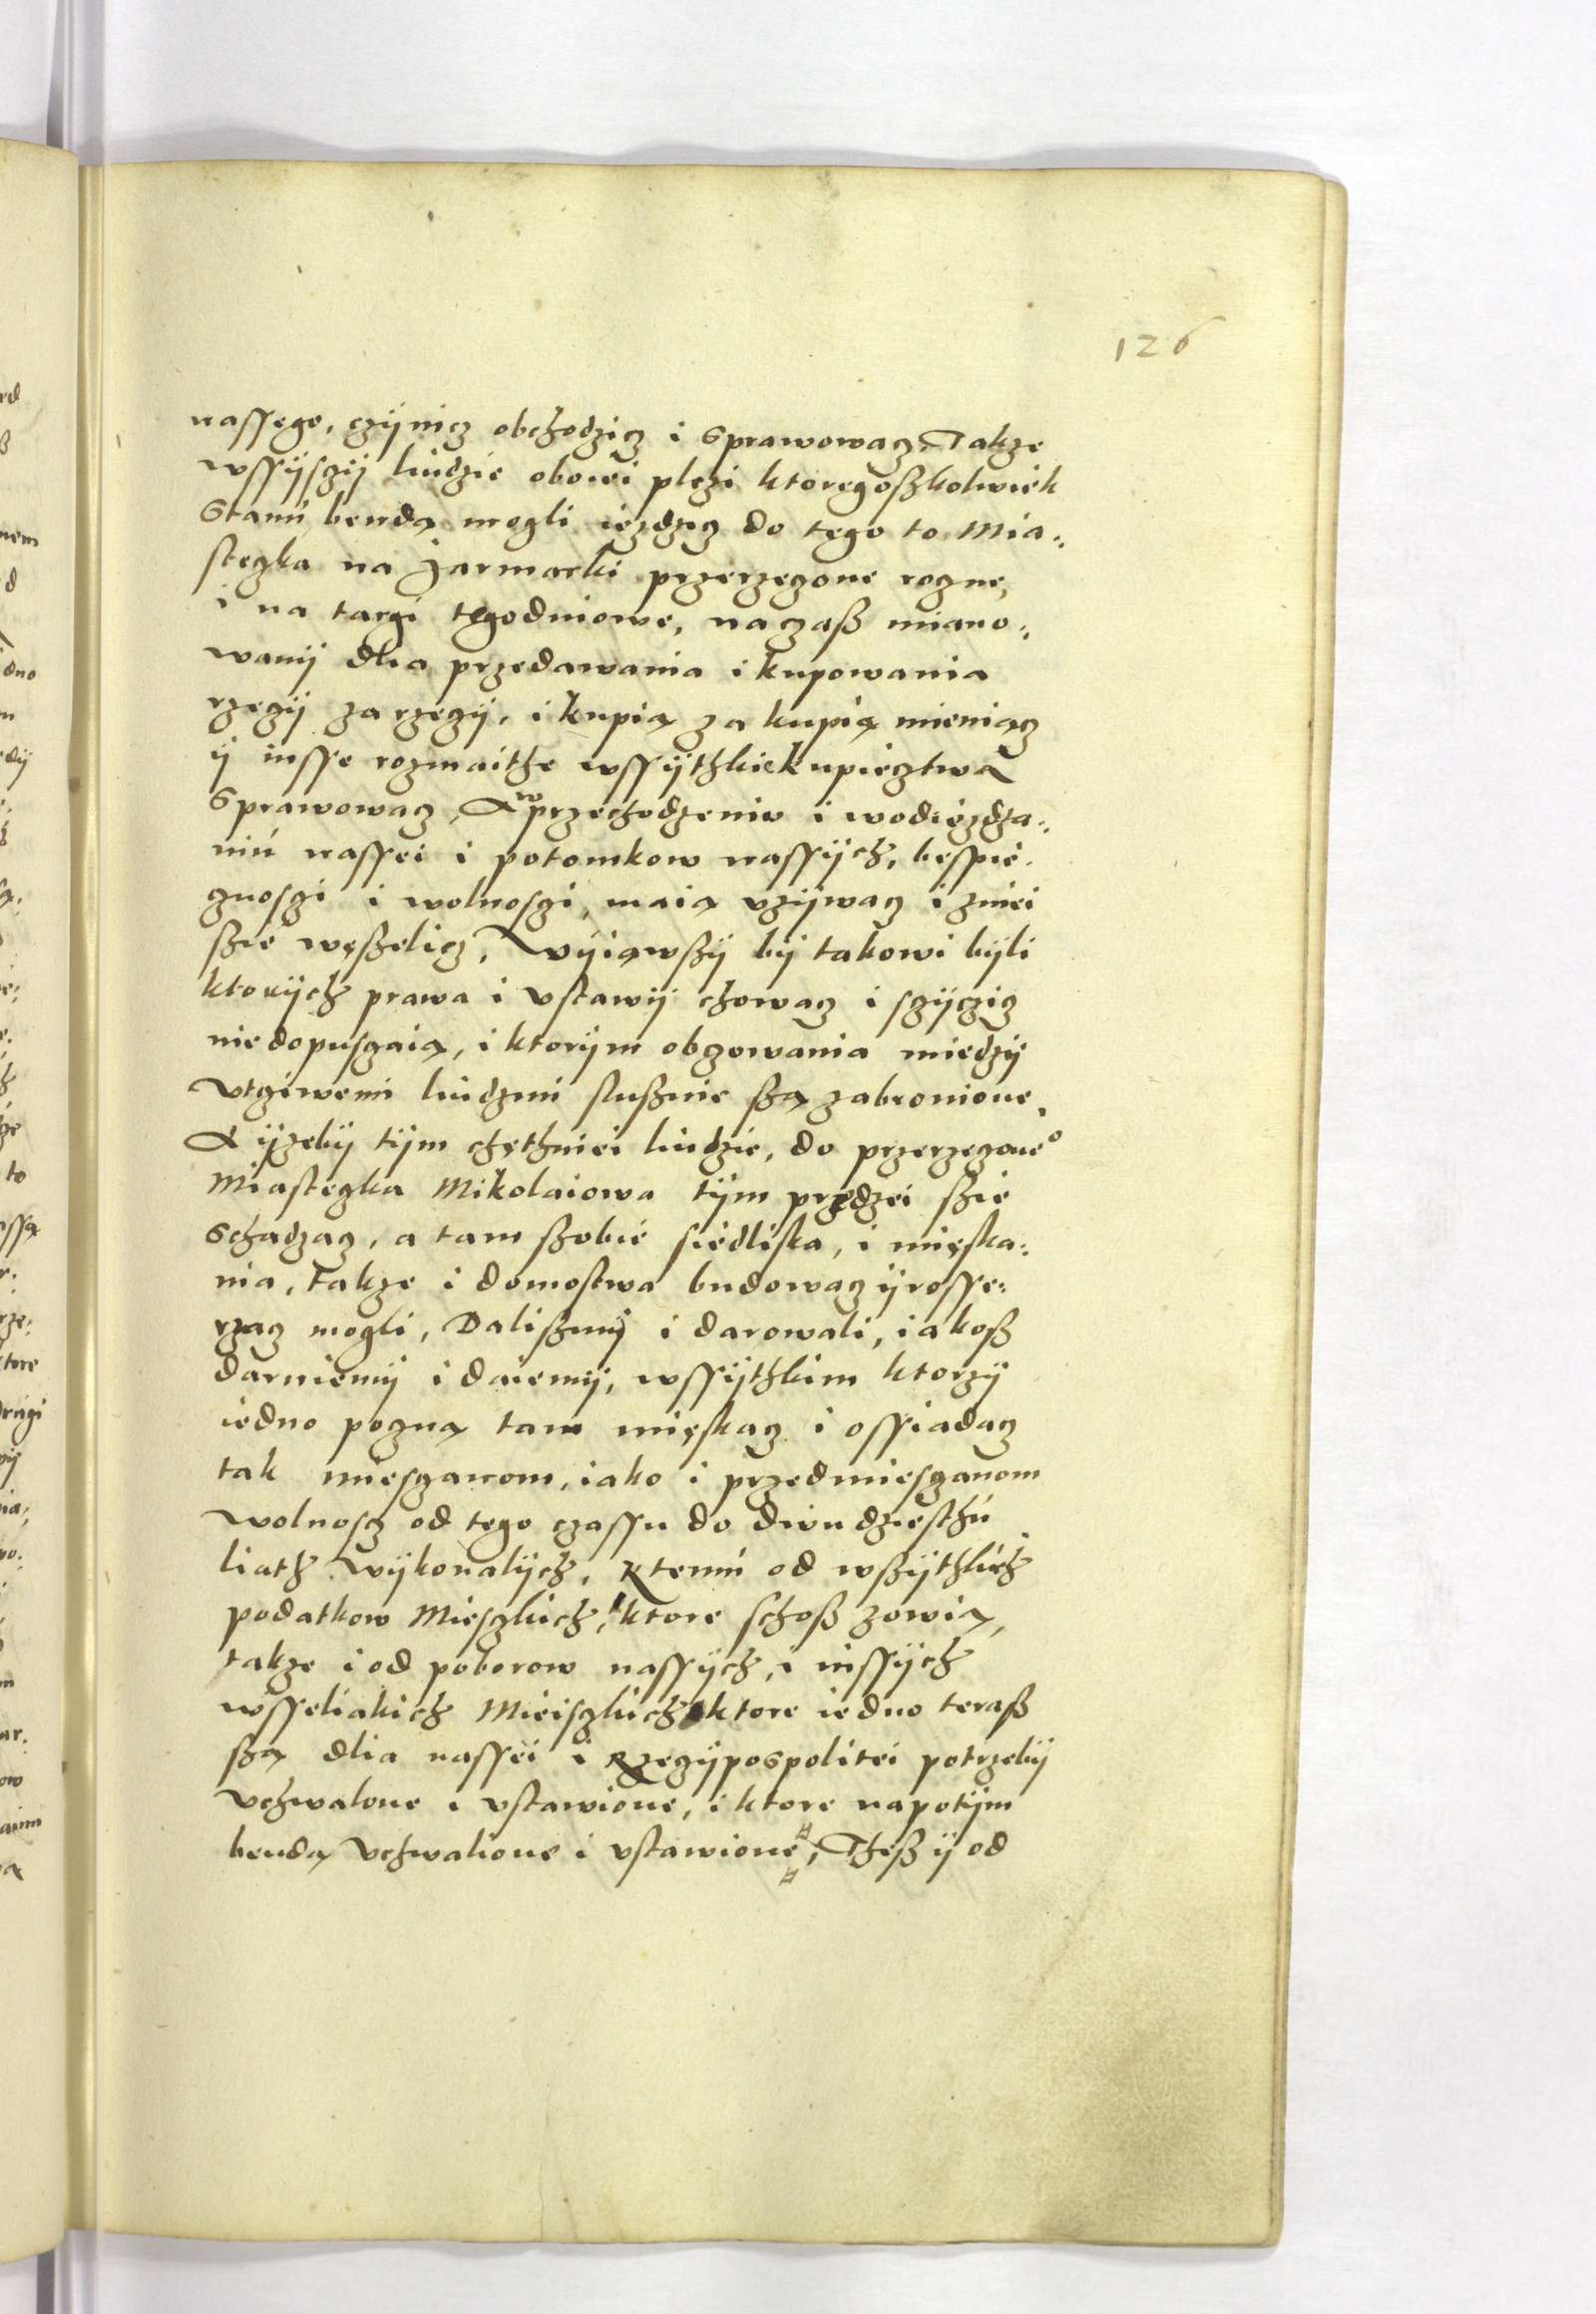 126
nassego, czÿnicz obchodzicz i sprawowacz, Takze
wssÿsczÿ liudzie oboiei plczi ktoregoszkolwiek
stanu benda mogli iezdzicz do tego to Mia:,
steczka na Jarmarki przerzeczone roczne,
i na targi tegodniowe, na czasz miano:,
wanÿ dlia przedawania i kupowania
rzeczÿ za rzeczÿ, i kupią za kupią mieniącz
ÿ insse rozmaithe wssÿthkie kupiecztwa
sprawowacz, A w przechodzeniu i wodiezdza:,
niu nassei i potomkow nassÿch, bespie:
cznosczi i wolnosczi, maią vzÿwacz i zniei
szie weszelicz, Wÿiąwszÿ bÿ takowi bÿli
ktorÿch prawa i vstawÿ chowacz i sczÿczicz
niedopusczaią, i ktorÿm obczowania miedzÿ
vtcziwemi liudzmi slusznie szą zabronione,
A ÿzebÿ tÿm chęthniei liudzie, do przerzeczone°
Miasteczka Mikolaiowa tÿm prędzei szie
schadzacz, a tam szobie siedliska, i mięska:,
nia, takze i domostwa budowacz ÿ rosse:
rzacz mogli, Daliszmÿ i darowali, iakosz
daruiemÿ i daiemÿ, wssÿthkim ktorzÿ
iedno poczną tam mięskacz i ossiadacz
tak miesczanom, iako i przedmiesczanom
wolnoscz od tego czassu do dwudziesthu
liath wÿkonalÿch, K temu od wszÿthkich
podatkow Miesczkich, ktore schosz zowią,
takze i od poborow nassÿch, i inssÿch
wsseliakich Mieisczkich ktore iedno terasz
szą dlia nassei i Rzeczÿpospolitei potrzebÿ
vchwalone i vstawione, i ktore napotÿm
bendą vchwalione i vstawione, Thesz ÿ od